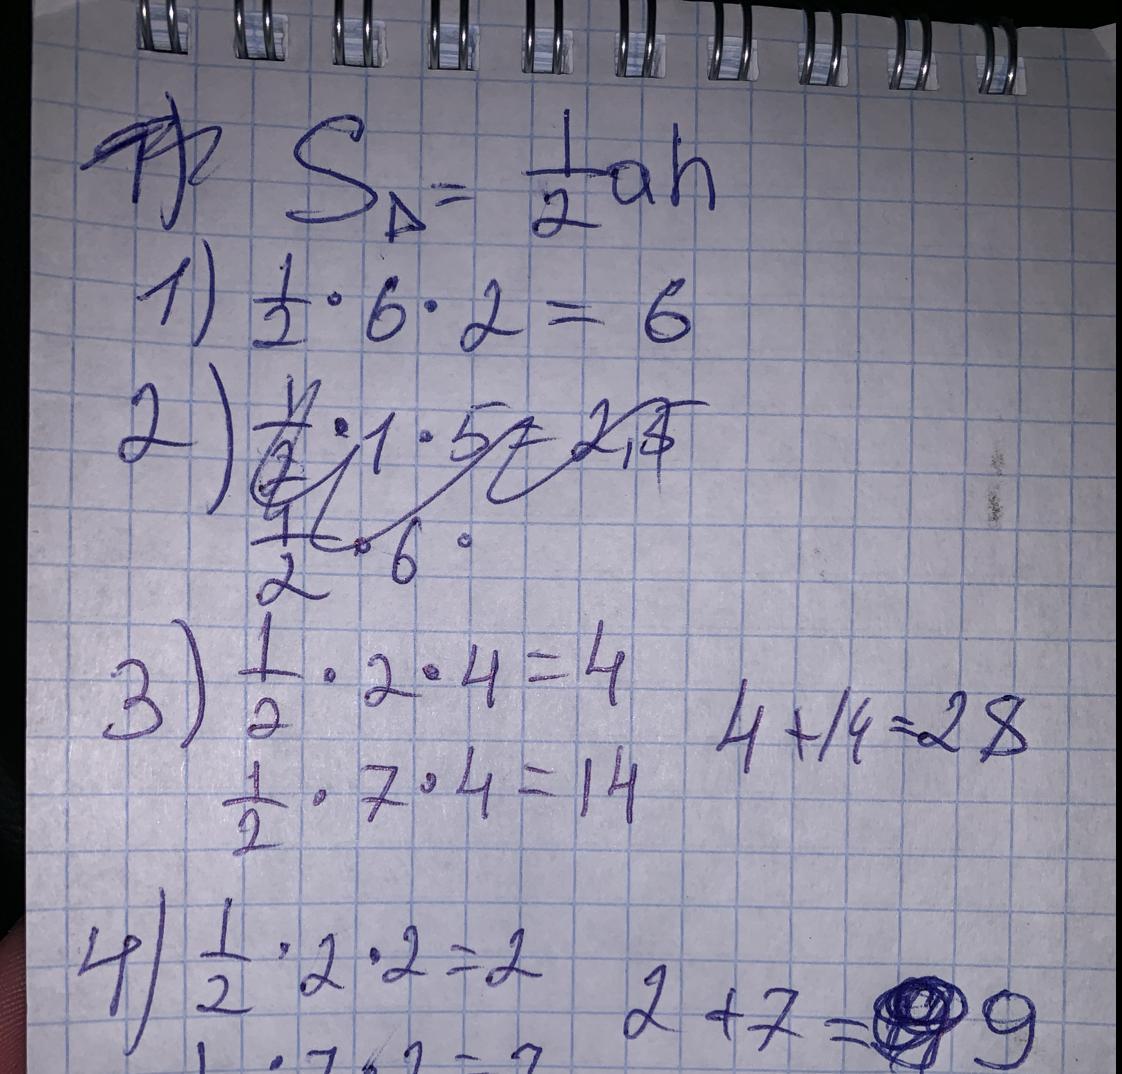 S△ = 1/2 ah
1) 1/2 · 6 · 2 = 6
2) 1/2 · 1 · 5 = 2,5
1/2 · 6 ·
3) 1/2 · 2 · 4 = 4
1/2 · 7 · 4 = 14
4 + 14 = 28
4) 1/2 · 2 · 2 = 2
2 + 7 = 9
1 · 7 · 2 = 7